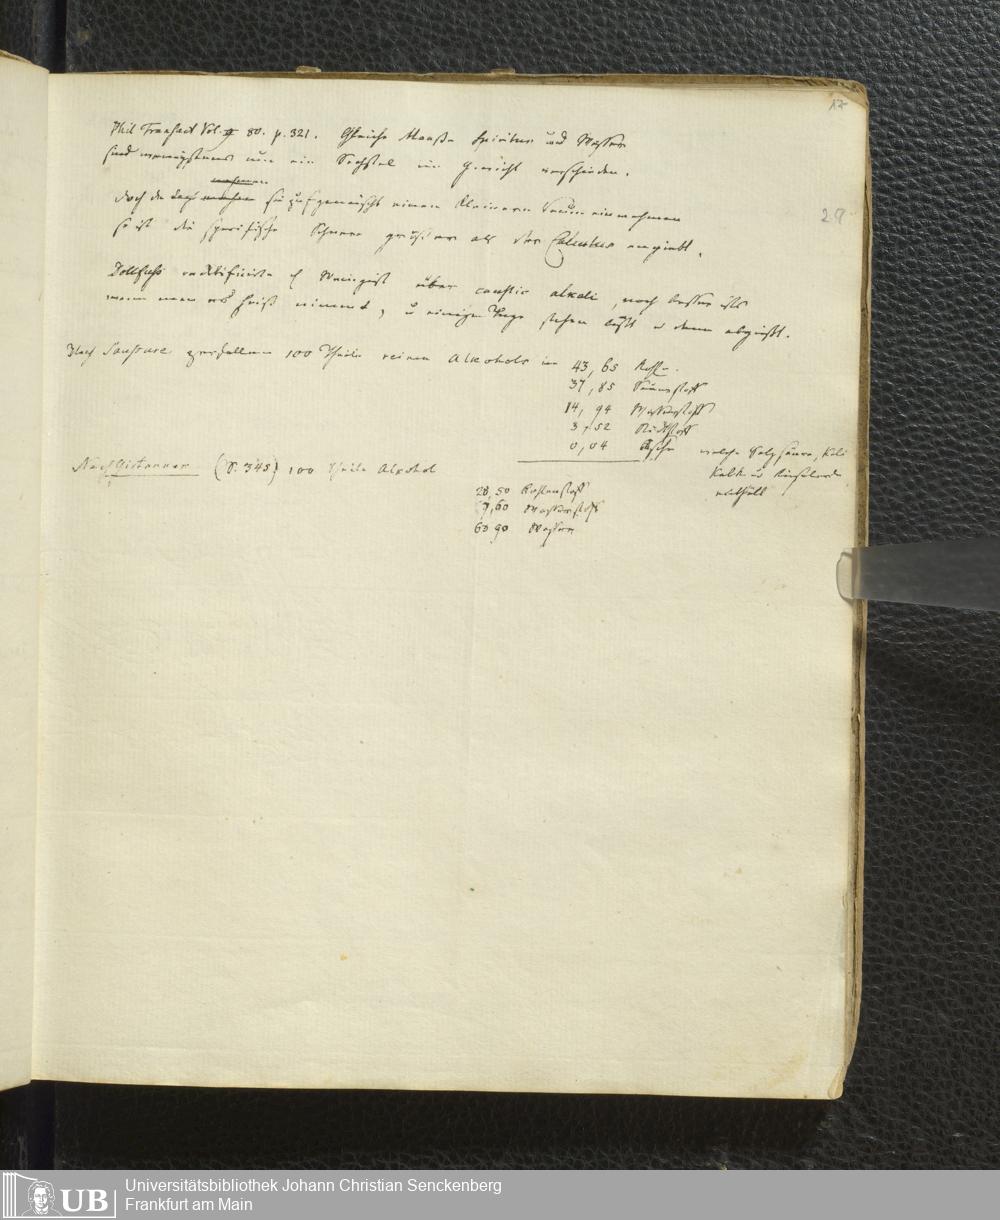 17
Phil Transact Vol. 80. p. 321. Gleiche Maaße Spiritus und Wasser
sind wenigstens um ein Sechstel im Gewicht verschieden.
nehmen
doch da sie zusgemischt einen kleinern Raum einnehmen
29
so ist die specifische Schwere größer als der Calculus angiebt.
Dollfuss rectificirte Weingeist über caustic alkali, noch besser ists
wenn man es heiß nimmt, u einige Tage stehen läßt u dann abgießt.
Nach Saussure zerfallen 100 Theile reinen Alkohols in 43,65 Kohle.
37,85 Sauerstoff
14,94 Wasserstoff
3,52 Stickstoff
0,04 Asche welche Salzsäure, Kali
Kalk u Kieselerde
enthält
Nach Girtanner (S. 345) 100 Theile Alcohol
28,50 Kohlenstoff
7,60 Wasserstoff
63 90 Wasser
UB
Universitätsbibliothek Johann Christian Senckenberg
Frankfurt am Main